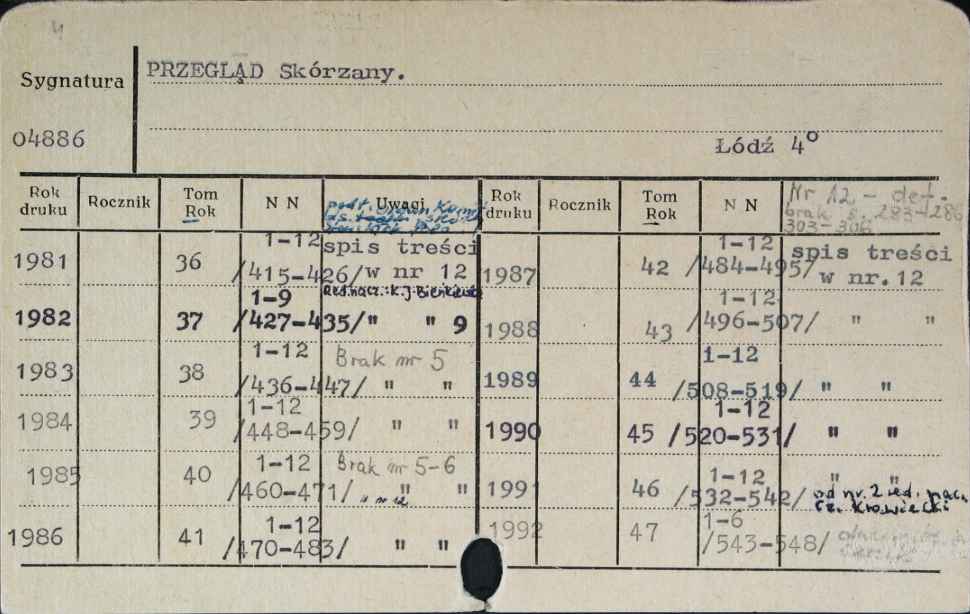 Sygnatura PRZEGLĄD Skórzany.
04886 Łódź 4°
Rok druku Rocznik Tom Rok N N Uwagi Rok druku Rocznik Tom Rok N N Nr 12 - def.
brak s. 283-286
303-306
1981 36 1-12 /415-426/ spis treści w nr 12
1982 37 1-9 /427-435/ Red.nacz.: K.J. " " 9
1983 38 1-12 /436-447/ Brak nr 5 " "
1984 39 1-12 /448-459/ " "
1985 40 1-12 /460-471/ Brak nr 5-6 " " " nr 12
1986 41 1-12 /470-483/ " "
1987 42 1-12 /484-495/ spis treści w nr.12
1988 43 1-12 /496-507/ " "
1989 44 1-12 /508-519/ " "
1990 45 1-12 /520-531/ " "
1991 46 1-12 /532-542/ " " od nr. 2 red. nacz. Cz.
1992 47 1-6 /543-548/